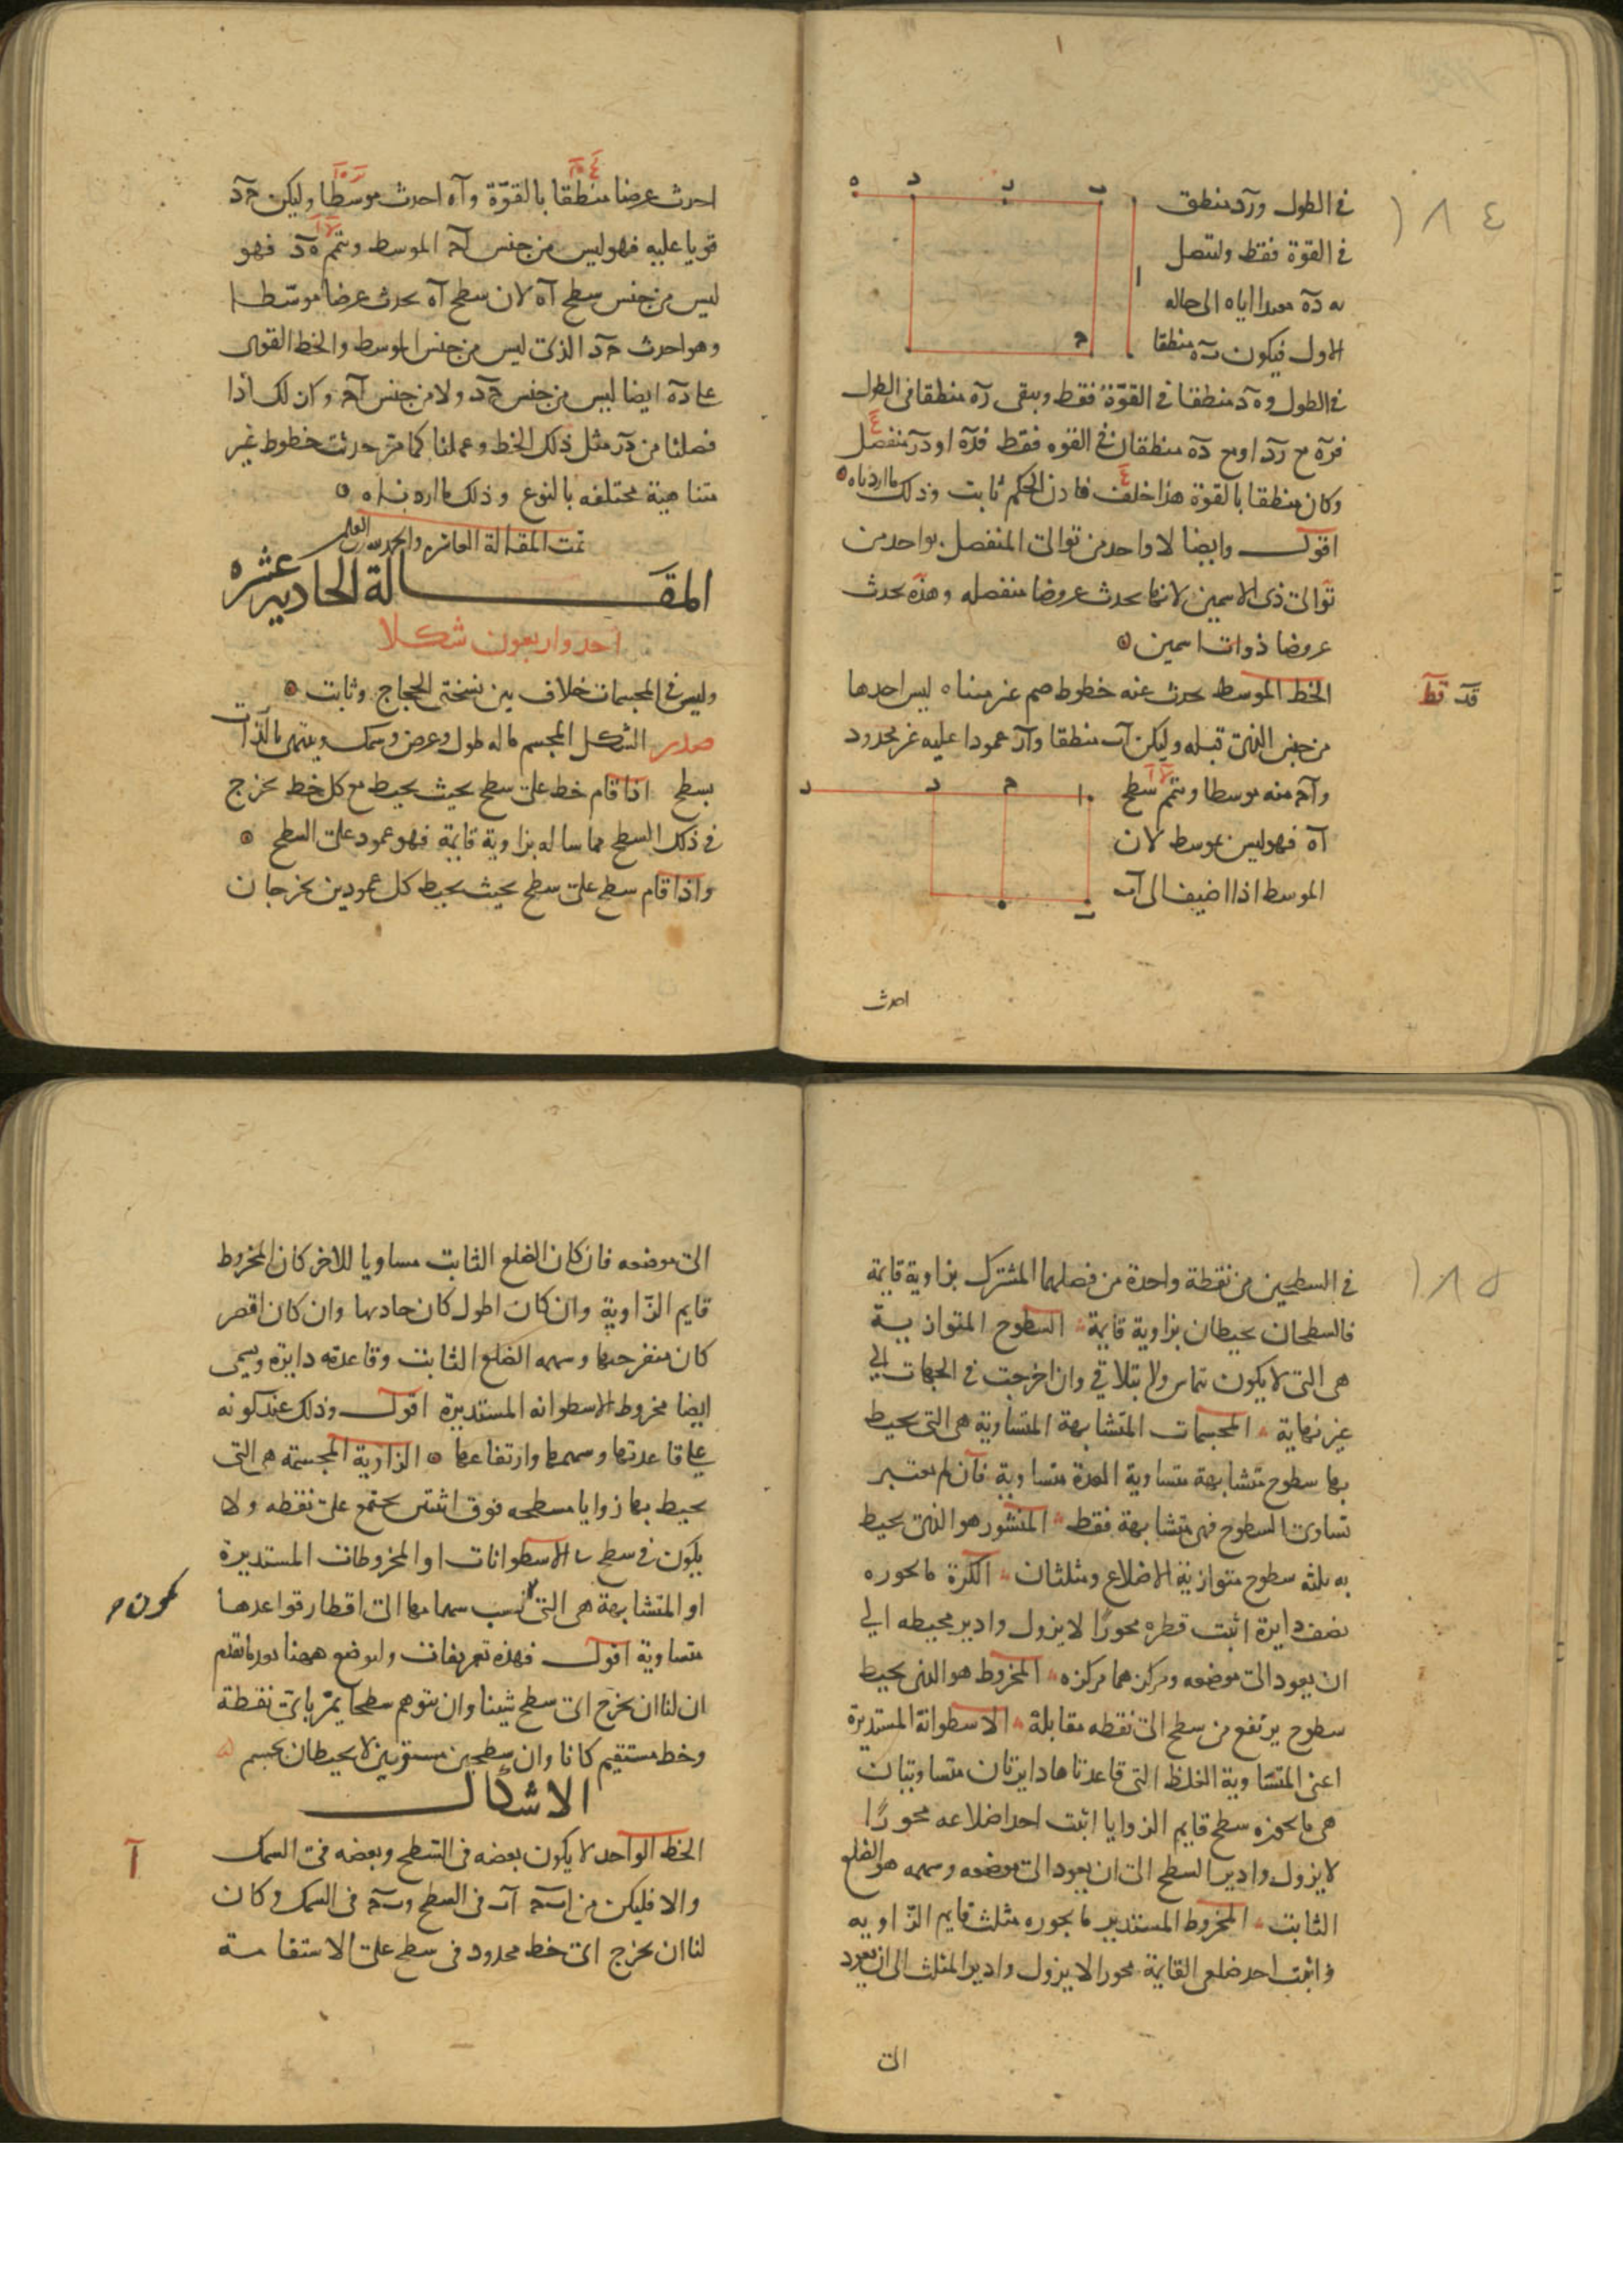 ١٨٤
في الطول ورد منطق
في القوة فقط وليتصل
به ده معيدا اياه الى حاله
الاول فيكون به منطقا
في الطول وه د منطقا في القوة فقط ويبقى ره منطقا في الطول
فره مع رد او مع ده منطقان في القوه فقط فده او در منفصل
وكان منطقا بالقوة هذا خلف فاذن الحكم ثابت وذلك ما اردناه
اقول وايضا لا واحد من توالى المنفصل بواحد من
توالى ذى الاسمين لانها يحدث عروضا منفصله وهذه يحدث
عروضا ذوات اسمين
قد قط
الخط الموسط يحدث عنه خطوط صم غير متناه ليس احدها
من جنس الذى قبله وليكن اب منطقا واد عمودا عليه غير محدود
واح منه موسطا ويتم سطح
اه فهو ليس بموسط لان
الموسط اذا اضيف الى اب
احدث
احدث عرضا منطقا بالقوة واه احدث موسطا وليكن حد
قويا عليه فهو ليس من جنس اح الموسط ويتم ه د فهو
ليس من جنس سطح اه لان سطح اه يحدث عرضا موسطا
وهو احدث حد الذى ليس من جنس الموسط والخط القوى
على ده ايضا ليس من جنس حد ولا من جنس اح وكذلك اذا
فصلنا من در مثل ذلك الخط وعملنا كما مر حدثت خطوط غير
متناهية مختلفه بالنوع وذلك ما اردناه
تمت المقالة العاشرة والحمد لله
المقالة الحادية عشره
احد واربعون شكلا
وليس في المجسمات خلاف بين نسختى الحجاج وثابت
صدر الشكل المجسم ما له طول وعرض وسمك وينتهى بالذات
بسطح اذا قام خط على سطح بحيث يحيط مع كل خط يخرج
في ذلك السطح مماسا له بزاوية قايمة فهو عمود على السطح
واذا قام سطح على سطح بحيث يحيط كل عمودين يخرجان
١٨٥
في السطحين من نقطة واحدة من فصلهما المشترك بزاوية قايمة
فالسطحان يحيطان بزاوية قايمة السطوح المتوازية
هى التى لا يكون تماس ولا تتلاقى وان اخرجت في الجهات الى
غير نهاية المجسمات المتشابهة المتساوية هى التى يحيط
بها سطوح متشابهة متساوية العدة متساوية فان لم يعتبر
تساوى السطوح فهى متشابهة فقط المنشور هو الذى يحيط
به ثلثه سطوح متوازية الاضلاع ومثلثان الكرة ما يحوزه
نصف دايرة اثبت قطره محورا لا يزول وادير محيطه الى
ان يعود الى موضعه ومركزهما مركزه المخروط هو الذى يحيط
سطوح يرتفع من سطح الى نقطه مقابلة الاسطوانة المستديرة
اعنى المتساوية الغلظ التى قاعدتاها دايرتان متساويتان
هى ما يحوزه سطح قايم الزوايا اثبت احد اضلاعه محورا
لا يزول وادير السطح الى ان يعود الى موضعه وسهمه هو الضلع
الثابت المخروط المستدير ما يحوزه مثلث قايم الزاويه
واثبت احد ضلعى القايمة محورا لا يزول وادير المثلث الى ان يعود
الى
الى موضعه فان كان الضلع الثابت مساويا للاخر كان المخروط
قايم الزاوية وان كان اطول كان حادها وان كان اقصر
كان منفرجها وسهمه الضلع الثابت وقاعدته دايرة ويسمى
ايضا مخروط الاسطوانه المستديرة اقول وذلك عند كونه
على قاعدتها وسهمها وارتفاعها الزاوية المجسمة هى التى
يحيط بها زوايا مسطحه فوق اثنتين يجتمع على نقطه ولا
يكون في سطح الاسطوانات او المخروطات المستديرة
او المتشابهة هى التى نسب سهامها الى اقطار قواعدها
يكون
متساوية اقول فهذه تعريفات وليوضع ههنا بعد ما تقدم
ان لنا ان نخرج اى سطح شينا وان نتوهم سطحا يمر باى نقطة
وخط مستقيم كانا وان سطحين مستويين لا يحيطان بجسم
الاشكال
ا
الخط الواحد لا يكون بعضه في السطح وبعضه في السمك
والا فليكن من ابح اب في السطح وبح في السمك وكان
لنا ان نخرج اى خط محدود في سطح على الاستقامة